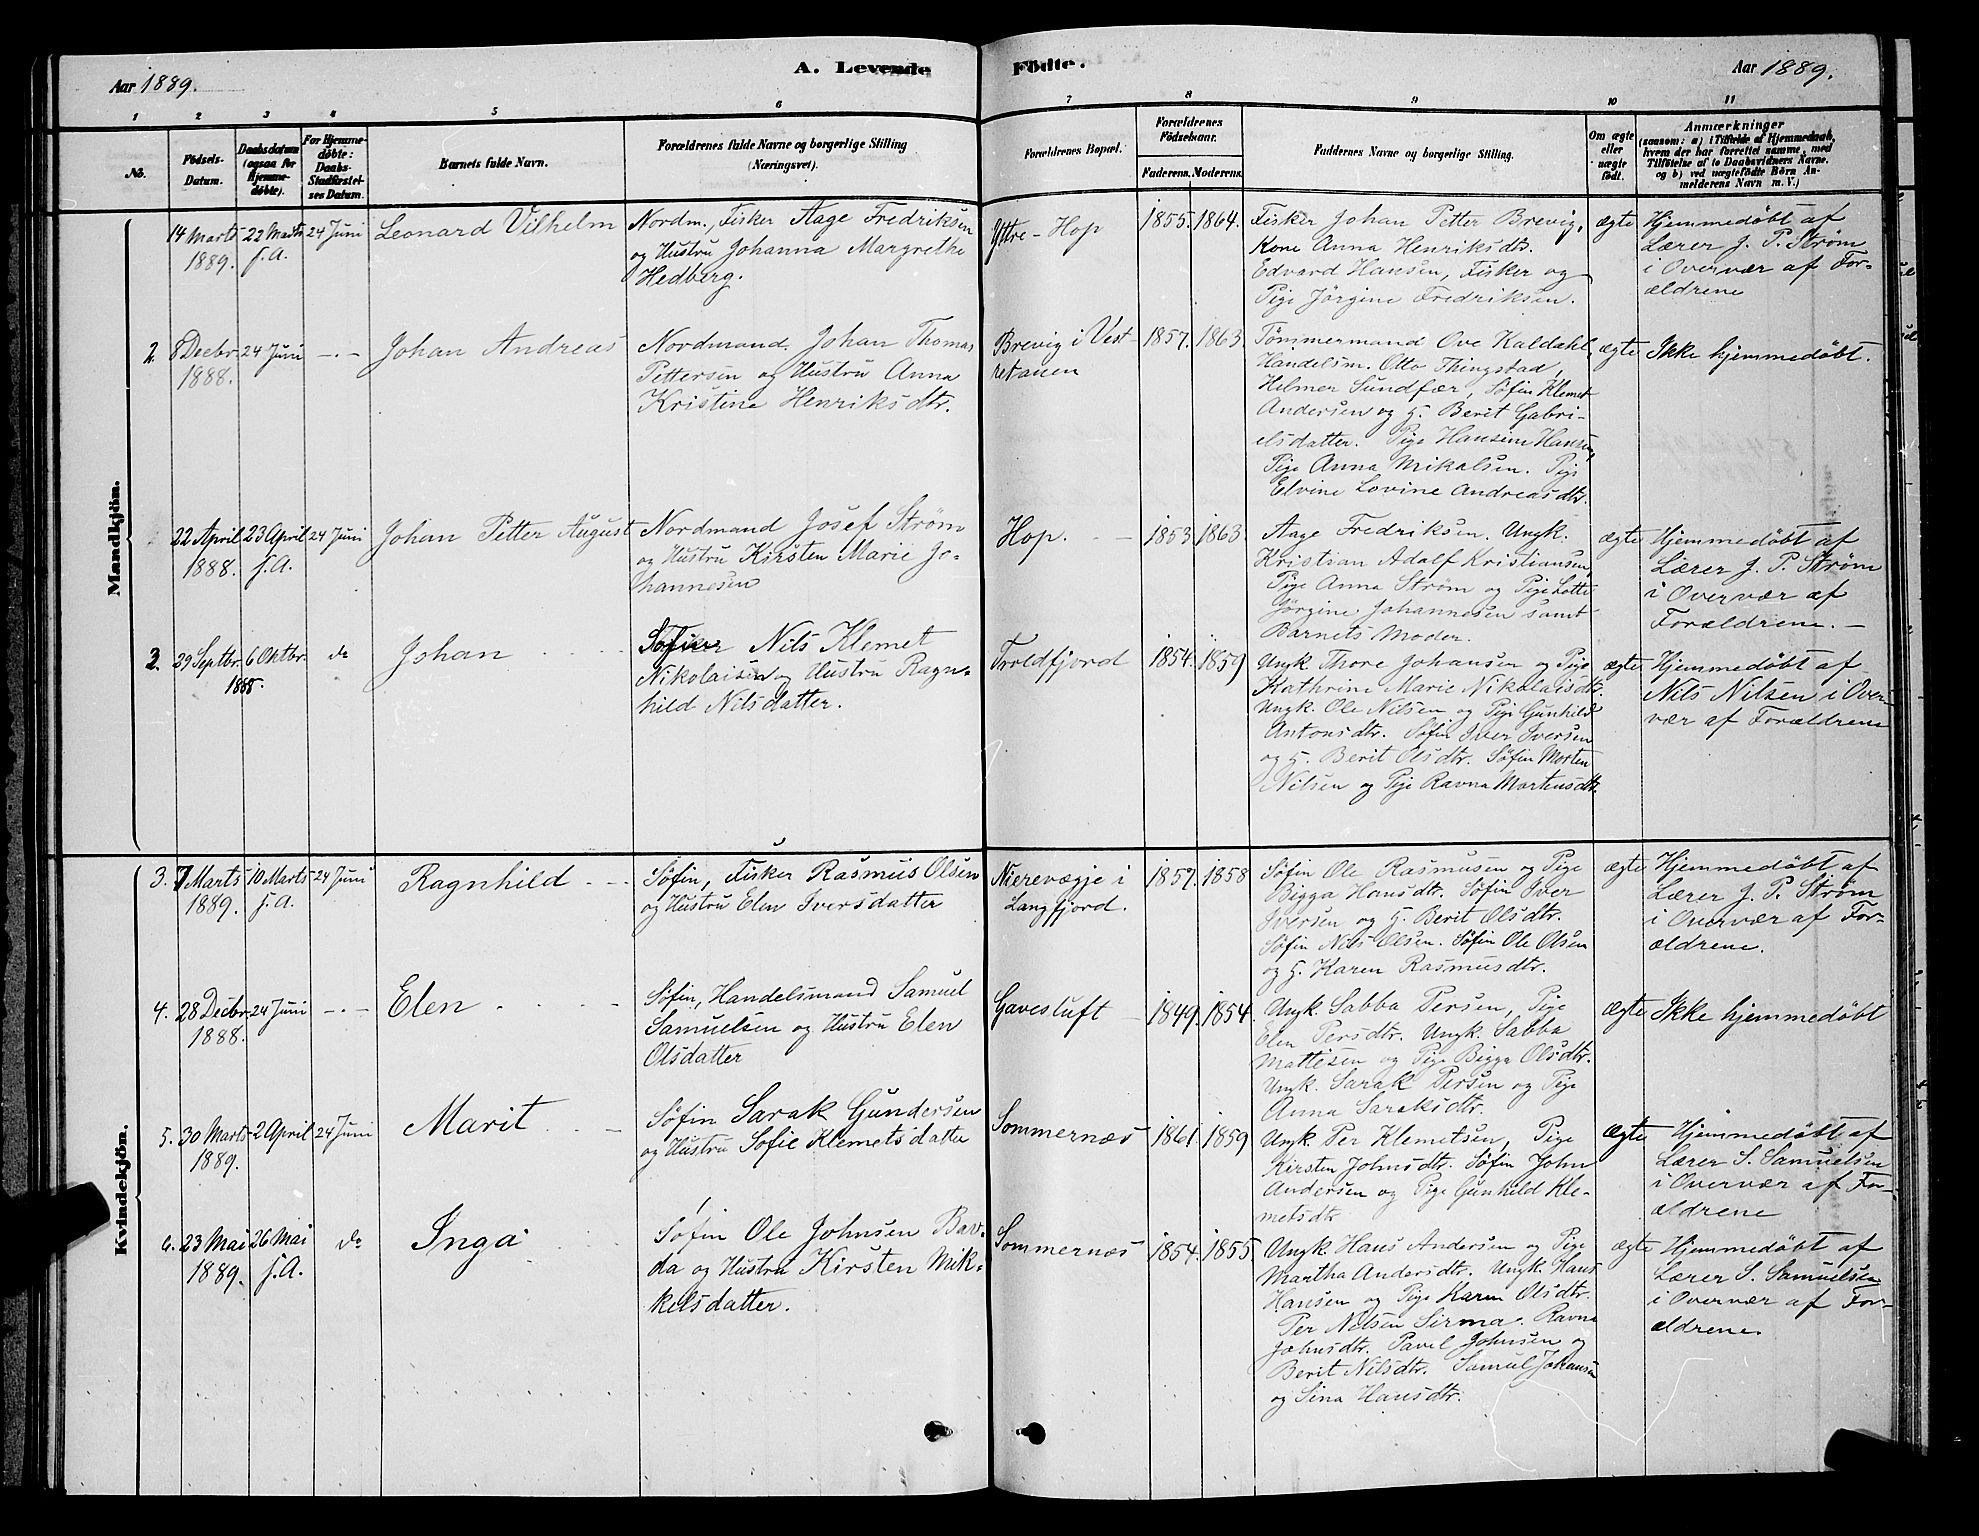 Aar 1889.
A. Levende
Födte.
Aar 1889.
1 2 3 4 5 6 7 8 9 10 11
No.
Födsels-
Datum.
Daabsdatum
(ogsaa for
Hjemme-
döbte).
For Hjemme-
døbte:
Daabs-
Stadfæstel-
ses Datum.
Barnets fulde Navn.
Forældrenes fulde Navne og borgerlige Stilling
(Næringsvei).
Forældrenes Bopæl.
Forældrenes
Födselsaar.
Faderens. Moderens.
Faddernes Navne og borgerlige Stilling.
Om ægte
eller
uægte
født.
Anmærkninger
(saasom: a) i Tilfælde af Hjemmedaab,
hvem der har forrettet samme, med
Tilföielse af to Daabsvidners Navne,
og b) ved uægtefödte Börn An-
melderens Navn m. V.)
Mandkjön.
14 Marts
1889.
22 Marts
s. A.
24 Juni
Leonard Vilhelm
Nordm., Fisker Aage Fredriksen
og Hustru Johanna Margrethe
Hedberg.
Yttre-Hop
1855. 1864.
Fisker Johan Petter Brevig,
Kone Anna Henriksdtr.
Edvard Hansen, Fisker og
Pige Jörgine Fredriksen.
ægte
Hjemmedöbt af
Lærer J. P. Ström
i Overvær af For-
ældrene
2.
8 Decbr.
1888.
24 Juni
-.-
Johan Andreas
Nordmand Johan Thomas
Pettersen og Hustru Anna
Kristine Henriksdtr.
Brevig i Vest-
retanen
1857. 1863.
Tömmermand Ove Kaldahl,
Handelsm. Otto Thingstad,
Hilmer Sundfær, Söfin Klemet
Andersen og G. Berit Gabri-
elsdatter. Pige Hansine Hansen,
Pige Anna Mikalsen. Pige
Elvine Lovine Andreasdtr.
ægte
Ikke hjemmedöbt.
22 April
1888.
23 April
s. A.
24 Juni
Johan Petter August
Nordmand Josef Ström
og Hustru Kirsten Marie Jo-
hannesen
Hop.
1853. 1863.
Aage Fredriksen. Ungk.
Kristian Adolf Kristiansen,
Pige Anna Ström og Pige Lotte
Jörgine Johannesen samt
Barnets Moder.
ægte
Hjemmedöbt af
Lærer J. P. Ström
i Overvær af
Forældrene.-
29 Septbr.
6 Oktbr.
1888.
do
Johan
Nils Klemet
Nikolaisen og Hustru Ragn-
hild Nilsdatter.
Troldfjord
1854. 1859
Ungk. Thore Johansen og Pige
Kathrine Marie Nikolaisdtr.
Ungk. Ole Nilsen og Pige Gunhild
Antonsdtr. Söfin Iver Iversen
og G. Berit Olsdtr. Söfin Morten
Nilsen og Pige Ravna Mortensdtr.
ægte
Hjemmedöbt af
Nils Nilsen i Over-
vær af Forældrene
Kvindekjön.
3.
7 Marts
1889.
10 Marts
s. A.
24 Juni
Ragnhild
Söfin, Fisker Rasmus Olsen
og Hustru Elen Iversdatter
Nierevægje i
Langfjord.
1857. 1858
Söfin Ole Rasmussen og Pige
Bigga Hansdtr. Söfin Iver
Iversen og G. Berit Olsdtr.
Söfin Nils Olsen. Söfin Ole Olsen
og G. Karen Rasmusdtr.
ægte
Hjemmedöbt af
Lærer J. P. Ström
i Overvær af For-
ældrene.
4.
28 Decbr.
1888.
24 Juni
-.-
Elen
Söfin, Handelsmand Samuel
Samuelsen og Hustru Elen
Olsdatter
Gavesluft
1849. 1854.
Ungk. Sabba Persen, Pige
Elen Persdtr. Ungk. Sabba
Mattisen og Pige Bigga Olsdtr.
Ungk. Sarak Persen og Pige
Anna Saraksdtr.
ægte
Ikke hjemmedöbt
5.
30 Marts
1889.
2 April
24 Juni
Marit
Söfin Sarak Gundersen
og Hustru Sofie Klemetsdatter
Sommernæs
1861. 1859
Ungk. Per Klemetsen, Pige
Kirsten Johnsdtr. Söfin John
Andersen og Pige Gunhild Kle-
metsdtr
ægte
Hjemmedöbt af
Lærer S. Samuelsen
i Overvær af For-
ældrene
6.
23 Mai
1889.
26 Mai
s. A.
do
Inga
Söfin Ole Johnsen Bav-
da og Hustru Kirsten Mik-
kelsdatter.
Sommernæs
1854. 1855.
Ungk. Hans Andersen og Pige
Martha Andersdtr. Ungk. Hans
Hansen og Pige Karen Olsdtr.
Per Nilsen Sirma. Ravna
Johnsdtr. Pavel Johnsen og
Berit Nilsdtr. Samuel Johansen
og Sina Hansdtr.
ægte
Hjemmedöbt af
Lærer S. Samuelsen
i Overvær af For-
ældrene.